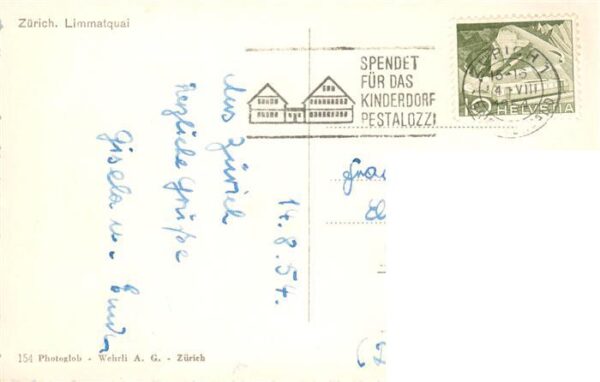 Zürich. Limmatquai
SPENDET
FÜR DAS
KINDERDORF
PESTALOZZI
HELVETIA
14.8.54.
Aus Zürich
Herzliche Grüße
Gisela u.
Frau
154 Photoglob - Wehrli A. G. - Zürich